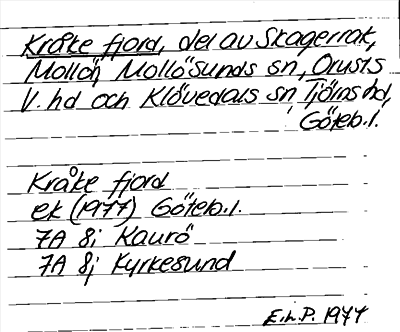 Kråke fjord, del av Skagerrak,
Mollön, Mollösunds sn, Orusts
V. hd och Klövedals sn Tjörns hd,
Göteb.l.
Kråke fjord
ek (1977) Göteb.l.
7A 8i Kaurö
7A 8j Kyrkesund
E.h.P. 1977